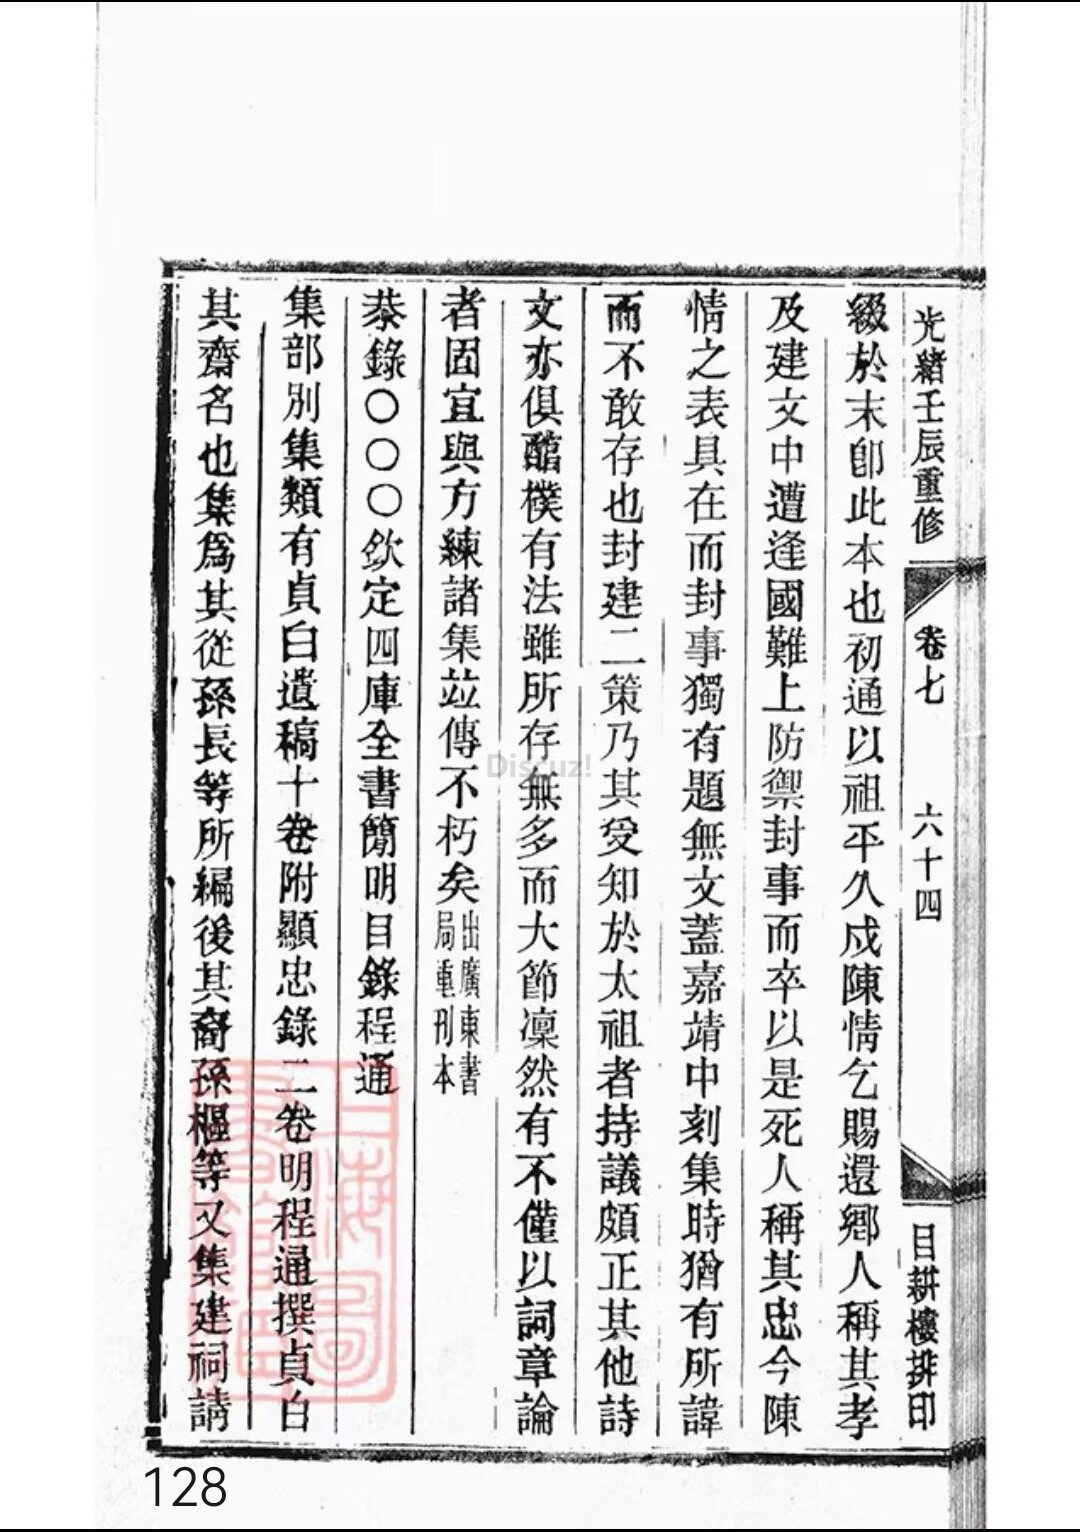 光緒壬辰重修 卷七 六十四 目耕樓排印
綴於末卽此本也初通以祖平久戍陳情乞賜還鄉人稱其孝
及建文中遭逢國難上防禦封事而卒以是死人稱其忠今陳
情之表具在而封事獨有題無文蓋嘉靖中刻集時猶有所諱
而不敢存也封建二策乃其受知於太祖者持議頗正其他詩
文亦俱醞樸有法雖所存無多而大節凜然有不僅以詞章論
者固宜與方練諸集竝傳不朽矣出廣東書局重刊本
恭錄〇〇〇欽定四庫全書簡明目錄程通
集部別集類有貞白遺稿十卷附顯忠錄二卷明程通撰貞白
其齋名也集爲其從孫長等所編後其裔孫樞等又集建祠請
Discuz!
128